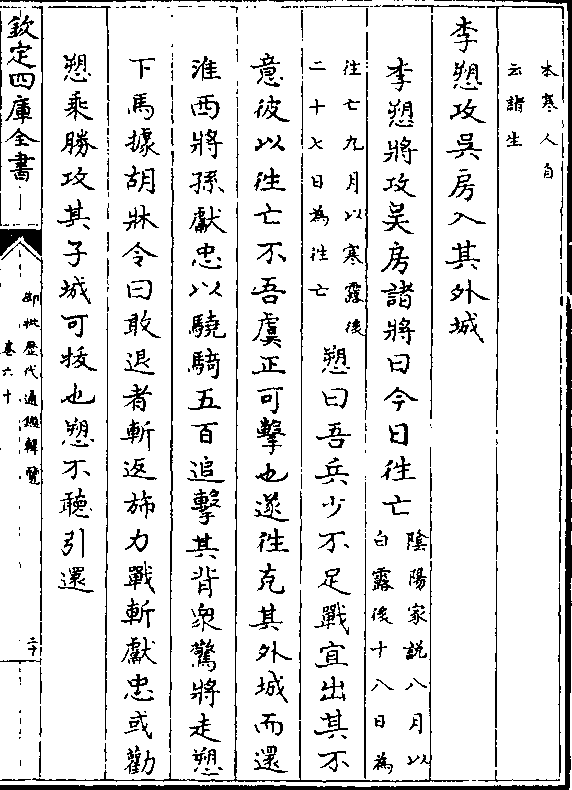 本寒人自
云諸生
李愬攻吳房入其外城
李愬將攻吳房諸將曰今日徃亡陰陽家説八月以
白露後十八日為
徃亡九月以寒露後
二十七日為徃亡
愬曰吾兵少不足戰宜出其不
意彼以徃亡不吾虞正可擊也遂徃克其外城而還
淮西將孫獻忠以驍騎五百追擊其背衆驚將走愬
下馬據胡牀令曰敢退者斬返斾力戰斬獻忠或勸
愬乘勝攻其子城可拔也愬不聽引還
欽定四庫全書
御批歷代通鑑輯覽
卷六十
二十